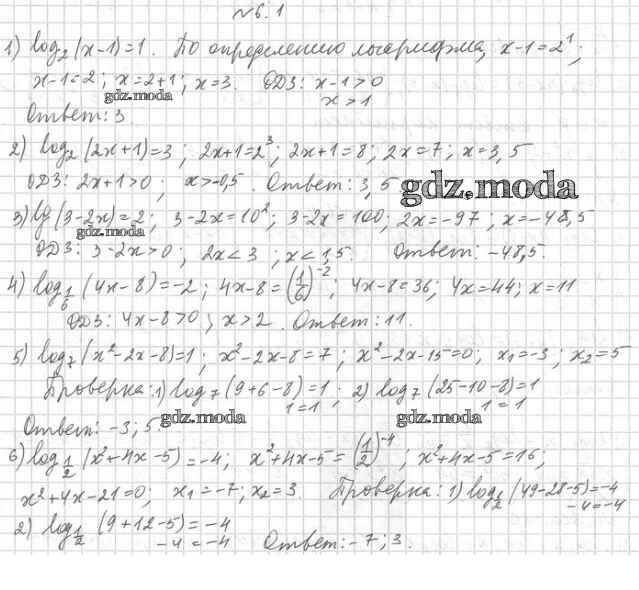 №6.1
1) log₂(x-1)=1. По определению логарифма, x-1=2¹;
x-1=2; x=2+1; x=3. ОДЗ: x-1>0
gdz.moda x>1
Ответ: 3.
2) log₂(2x+1)=3; 2x+1=2³; 2x+1=8; 2x=7; x=3,5
ОДЗ: 2x+1>0; x>-0,5. Ответ: 3,5 gdz.moda
3) lg(3-2x)=2; 3-2x=10²; 3-2x=100; 2x=-97; x=-48,5
gdz.moda
ОДЗ: 3-2x>0; 2x<3; x<1,5. Ответ: -48,5.
4) log_{1/6}(4x-8)=-2; 4x-8=(1/6)⁻²; 4x-8=36; 4x=44; x=11
ОДЗ: 4x-8>0; x>2. Ответ: 11.
5) log₇(x²-2x-8)=1; x²-2x-8=7; x²-2x-15=0; x₁=-3; x₂=5
Проверка: 1) log₇(9+6-8)=1; 2) log₇(25-10-8)=1
1=1 1=1
Ответ: -3; 5. gdz.moda gdz.moda
6) log_{1/2}(x²+4x-5)=-4; x²+4x-5=(1/2)⁻⁴; x²+4x-5=16;
x²+4x-21=0; x₁=-7; x₂=3. Проверка: 1) log_{1/2}(49-28-5)=-4
-4=-4
2) log_{1/2}(9+12-5)=-4
-4=-4 Ответ: -7; 3.